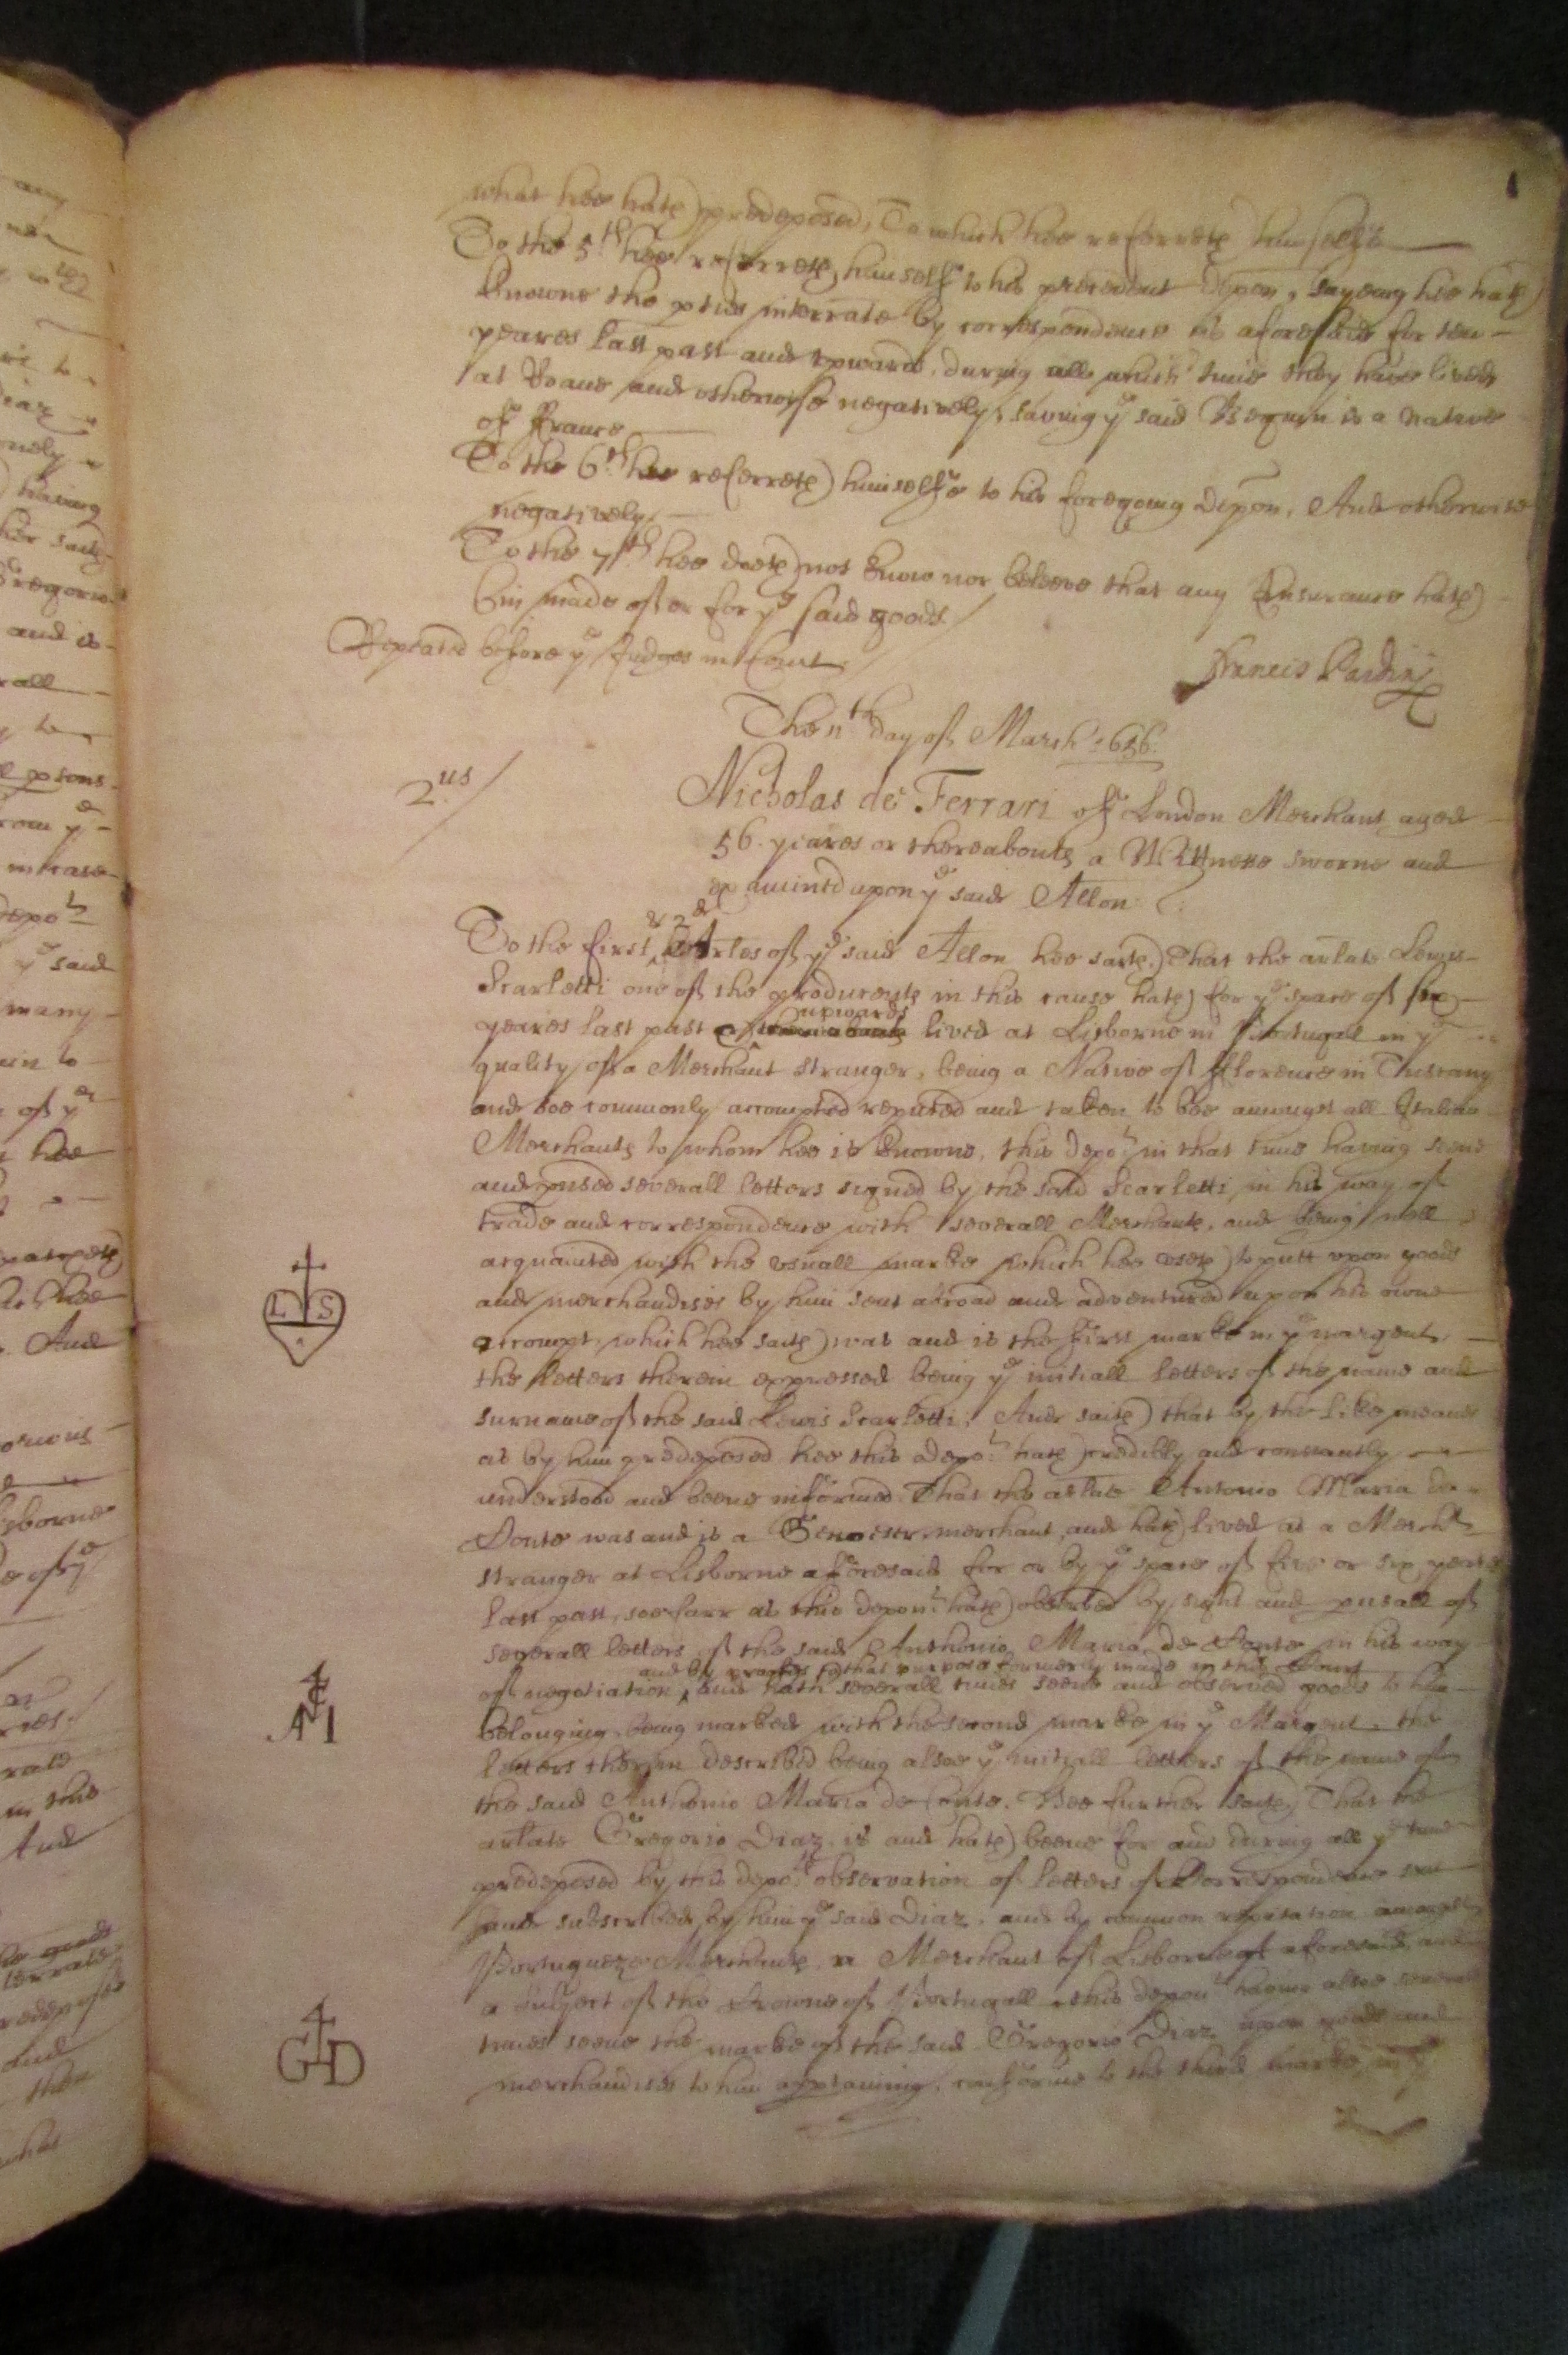 what hee hath predeposed, To which hee referreth himselfe
To the 5th hee referreth himself to his precedent depon, sayeing hee hath
knowne the pties interrate by correspondence as aforesaid for ten
yeares last past and upward, during all which time they have lived
at Roane and otherwise negatively, saving ye said Bequin is a native
of ffrance
To the 6th hee referreth himselfe to his foregoing depon, And otherwise
negatively.
To the 7th hee doeth not know nor beleeve that any Insurance hath
bin made of or for ye said goods
Repeated before ye Judges in Court
Francis
The 11th day of March 1656.
2us
Nicholas de Ferrari of London Merchant aged
56. yeares or thereabouts a Wittnesse sworne and
examined upon ye said Allon
& 2d
To the first Artles of ye said Allon hee saith That the arlate Lewis
Scarletti one of the producents in this cause hath for ye space of six
upwards
yeares last past or thereabouts lived at Lisborne in Portugall in ye
quality of a Merchant stranger, being a Native of fflorence in Tuscany
and soe commonly accompted reputed and taken to bee amongst all Italian
Merchants to whom hee is knowne, this depot in that time having seene
and pused severall letters signed by the said Scarletti in his way of
trade and correspondence with severall Merchants, and being well
acquainted with the usuall marke which hee useth to putt upon goods
and merchandises by him sent abroad and adventured upon his owne
L S
accompt, which hee saith was and is the first marke in ye margent,
the letters therein expressed being ye initiall letters of the name and
surname of the said Lewis Scarletti; And saith that by the like meanes
as by him predeposed hee this depot hath credibly and constantly
understood and beene informed That the arlate Antonio Maria de
Ponte was and is a Genoese merchant, and hath lived as a Mercht
stranger at Lisborne aforesaid for or by ye space of five or six yeares
last past, soe farr as this depont hath observed by sight and pusall of
severall letters of the said Anthonio Maria de Ponte in his way
and by proofes to that purpose formerly made in this Court
of negotiation, and hath severall times seene and observed goods to him
AM
belonging being marked with the second marke in ye Margent, the
letters therein described being alsoe ye initiall letters of the name of
the said Anthonio Maria de Ponte. Hee further saith That the
arlate Gregorio Diaz is and hath beene for and during all ye time
predeposed by this depots observation of letters of Correspondence sent
and subscribed by him ye said Diaz, and by common reputation amongst
Portugueze Merchants a Merchant of Lisborne aforesaid and
a subject of the Crowne of Portugall, this depont having alsoe severall
times seene the marke of the said Gregorio Diaz upon goods and
G D
merchandises to him apptaining, conforme to the third marke in ye